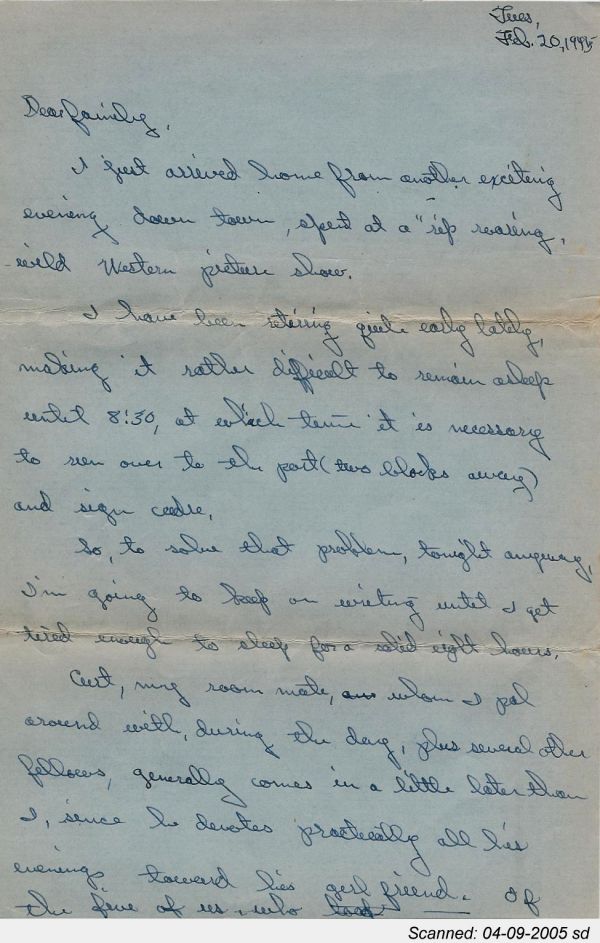 Tues,
Feb. 20, 1945
Dear family,
I just arrived home from another exciting
evening down town, spent at a "rip roaring,
wild Western picture show.
I have been retiring quite early lately,
making it rather difficult to remain asleep
until 8:30, at which time it is necessary
to run over to the post (two blocks away)
and sign
So, to solve that problem, tonight anyway,
I'm going to keep on writing until I get
tired enough to sleep for a solid eight hours.
Curt, my room mate, whom I pal
around with, during the day, plus several other
fellows, generally comes in a little later than
I, since he devotes practically all his
evenings toward his girl friend. Of
the five of us who
Scanned: 04-09-2005 sd